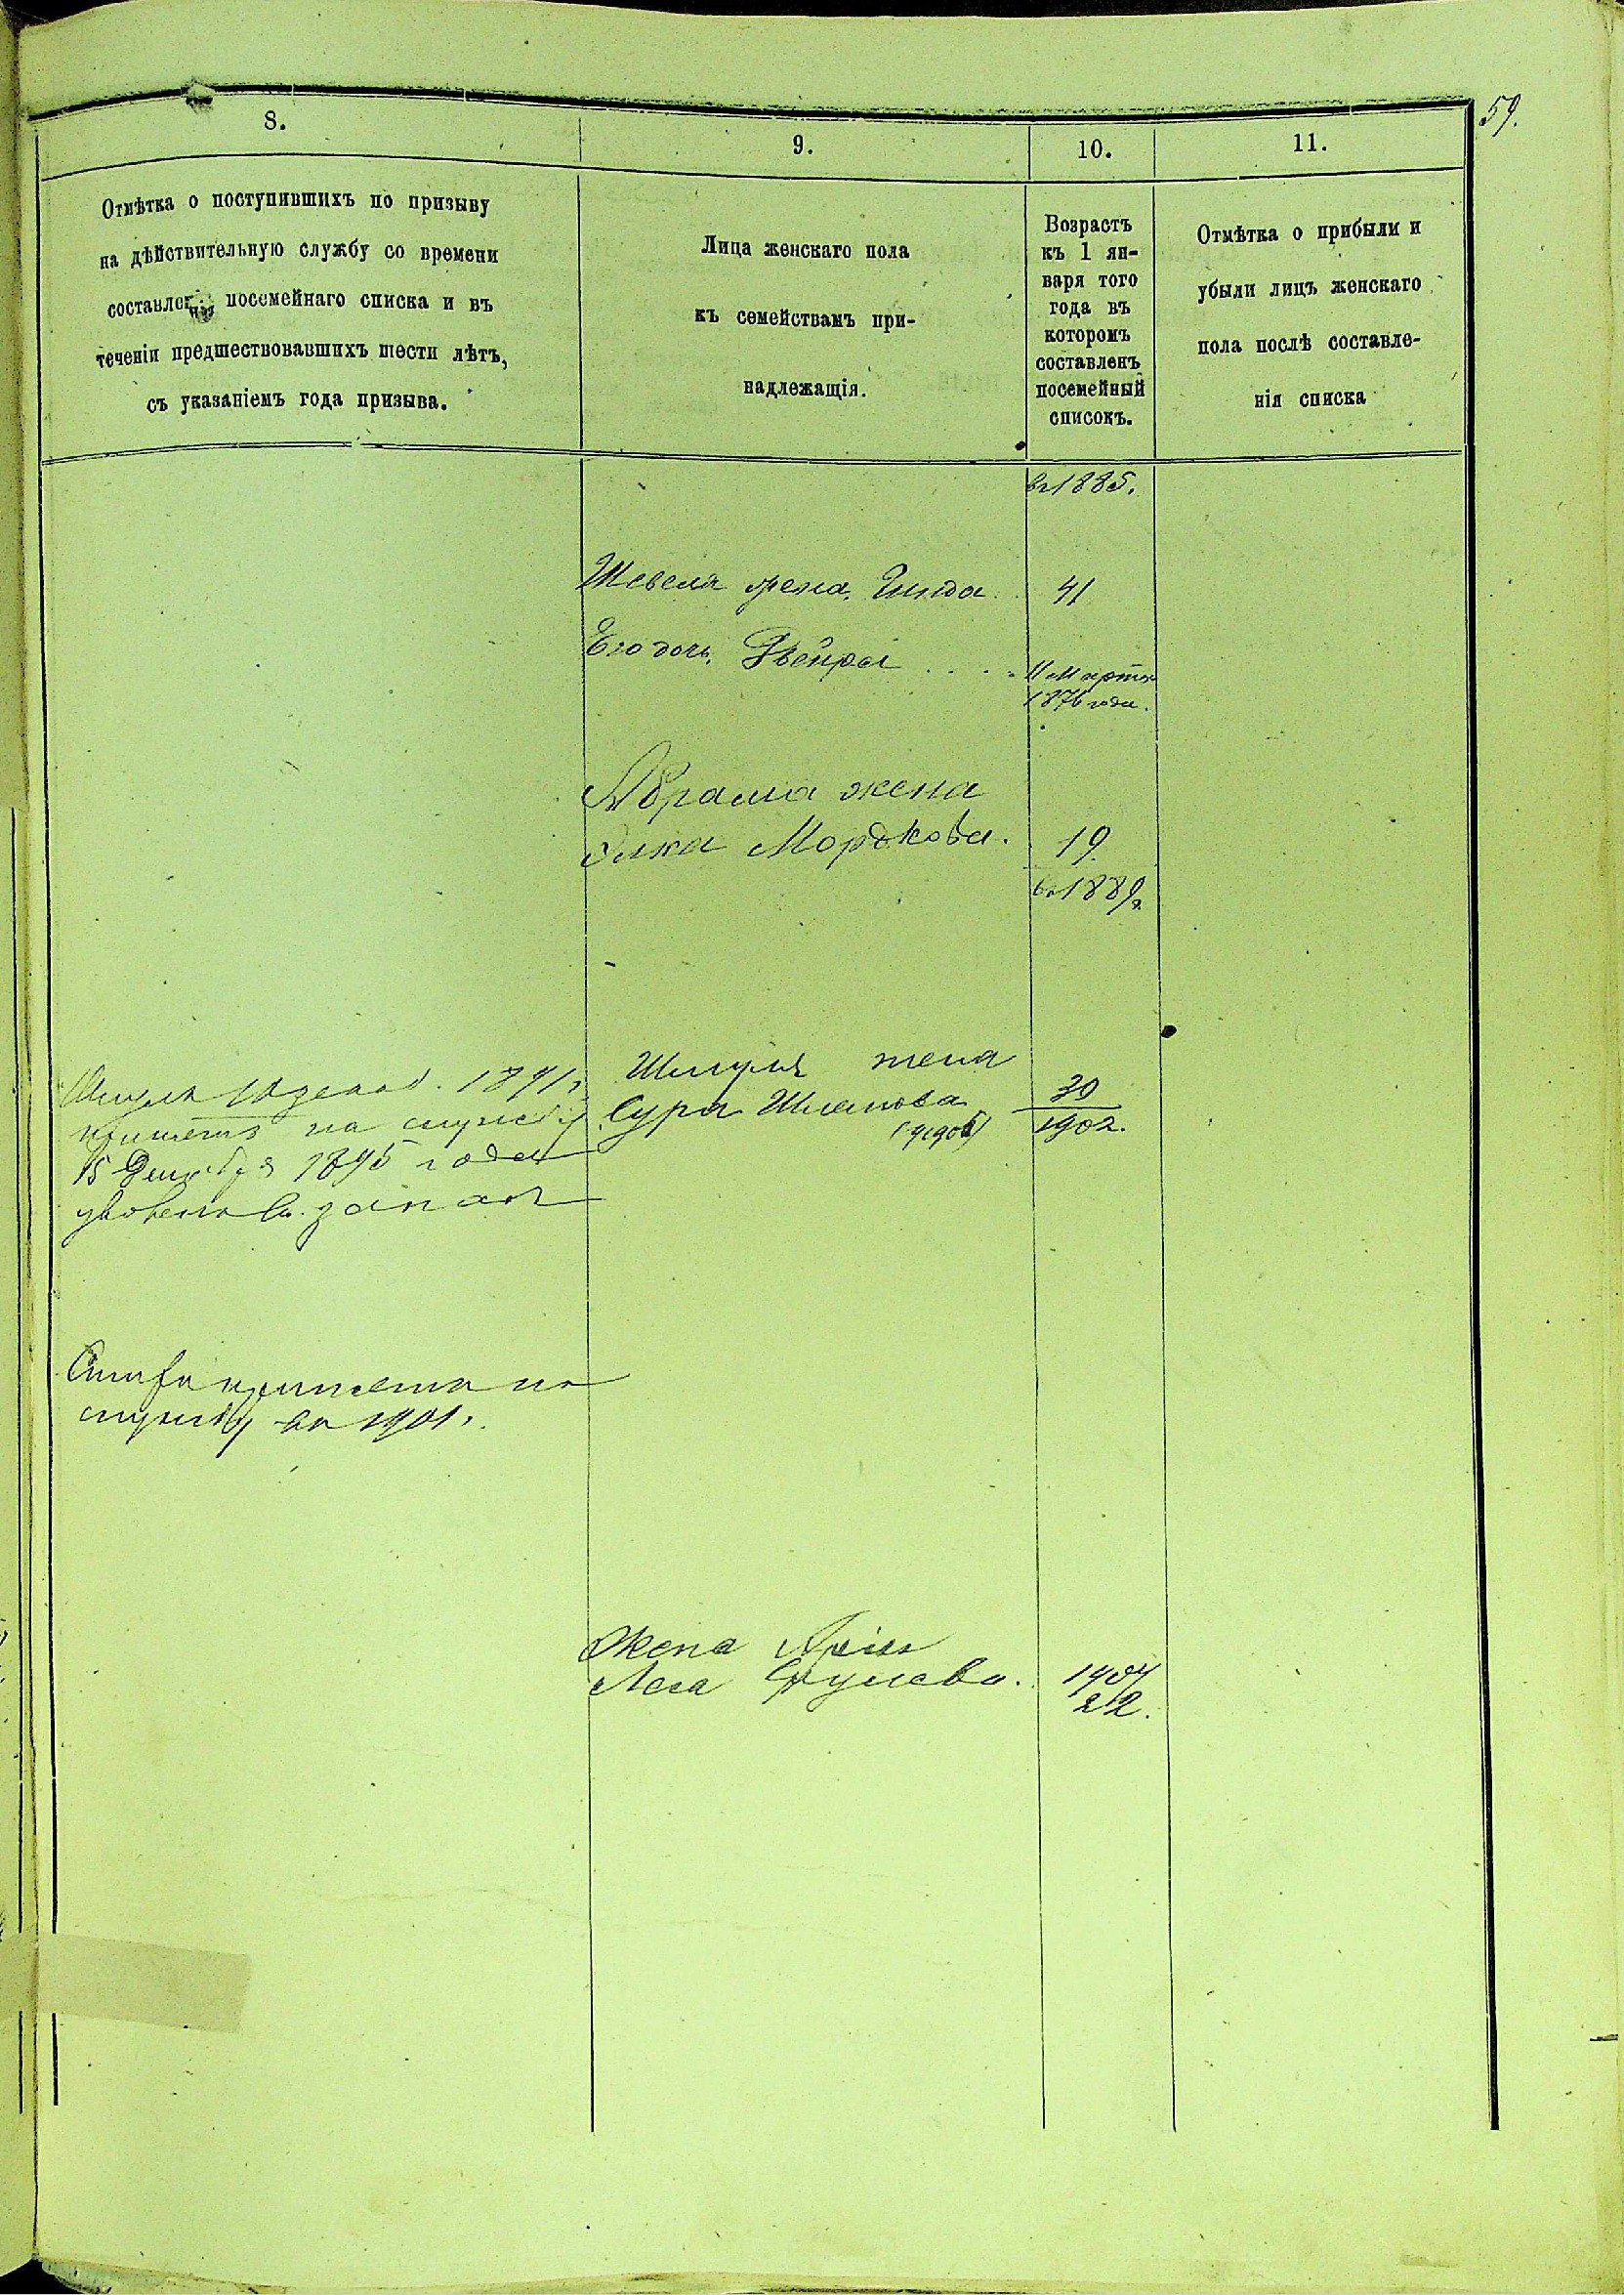 59.
8.
9.
10.
11.
Отмѣтка о поступившихъ по призыву
на дѣйствительную службу со времени
составленія посемейнаго списка и въ
теченіи предшествовавшихъ шести лѣтъ,
съ указаніемъ года призыва.
Лица женскаго пола
къ семействамъ при-
надлежащія.
Возрастъ
къ 1 ян-
варя того
года въ
которомъ
составленъ
посемейный
списокъ.
Отмѣтка о прибыли и
убыли лицъ женскаго
пола послѣ составле-
нія списка
въ 1885.
Шевеля жена 41
Его дочь Двейра 11 Марта
1876 года.
Абрама жена
Элка Мордкова. 19.
въ 1889
Шмуля жена
Сура Шлемова 30
1902.
Шмуля 1891
принятъ на службу
15 Декабря 1895 года
уволенъ въ запасъ
принятъ на
службу въ 1901.
Жена
Леса 1907
22.